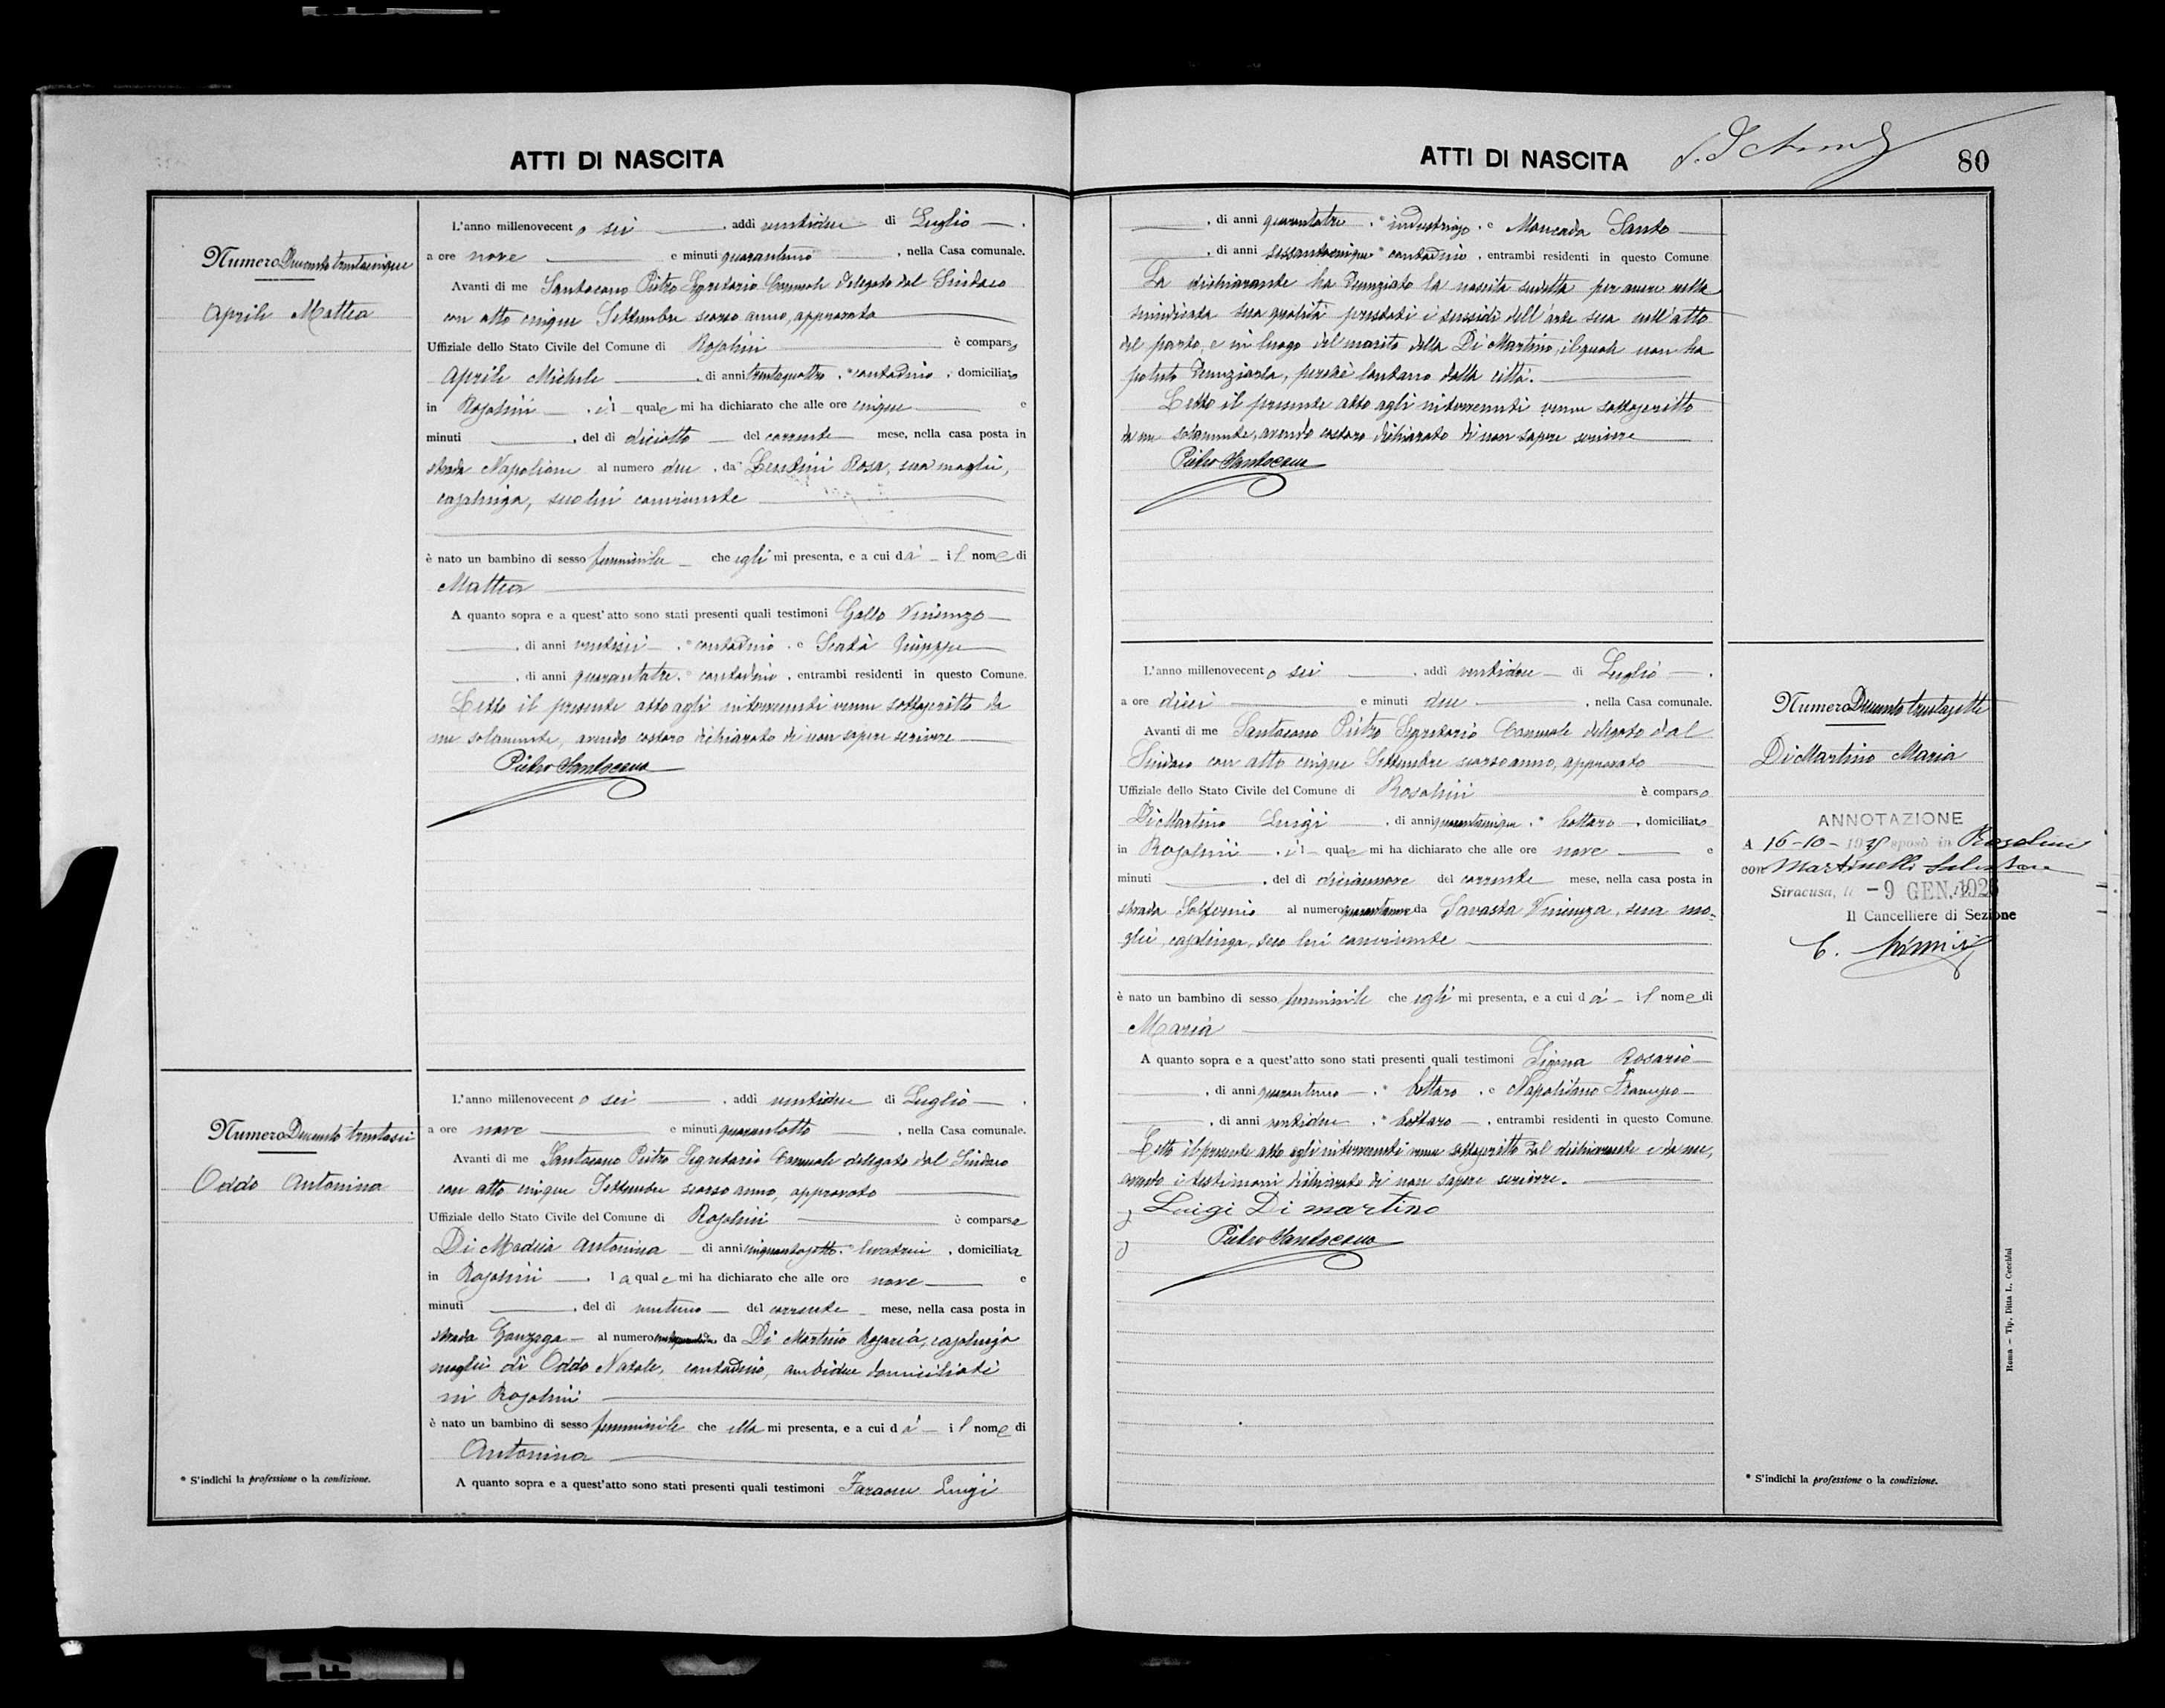 ATTI DI NASCITA
Numero Duecento trentacinque
Aprile Mattea
L'anno millenovecento sei, addi ventidue di Luglio
a ore nove e minuti quarantuno, nella Casa comunale.
Avanti di me Santocono Pietro Segretario Comunale delegato dal Sindaco
con atto cinque Settembre scorso anno, approvato
Uffiziale dello Stato Civile del Comune di Rosolini è comparso
Aprile Michele, di anni trentaquattro, * contadino, domiciliato
in Rosolini, il quale mi ha dichiarato che alle ore cinque e
minuti, del dì diciotto del corrente mese, nella casa posta in
strada Napoleone al numero due, da Lentini Rosa, sua moglie,
casalinga, seco lui convivente
è nato un bambino di sesso femminile che egli mi presenta, e a cui dà il nome di
Mattea
A quanto sopra e a quest'atto sono stati presenti quali testimoni Gallo Vincenzo
, di anni ventisei, * contadino, e Scatà Giuseppe
, di anni quarantatre, * contadino, entrambi residenti in questo Comune.
Letto il presente atto agli intervenuti venne sottoscritto da
me solamente, avendo costoro dichiarato di non sapere scrivere
Pietro Santocono
Numero Duecento trentasei
Oddo Antonina
L'anno millenovecento sei, addi ventidue di Luglio
a ore nove e minuti quarantotto, nella Casa comunale.
Avanti di me Santocono Pietro Segretario Comunale delegato dal Sindaco
con atto cinque Settembre scorso anno, approvato
Uffiziale dello Stato Civile del Comune di Rosolini è comparsa
Di Maria Antonina di anni cinquantasette, * levatrice, domiciliata
in Rosolini, la quale mi ha dichiarato che alle ore nove e
minuti, del dì ventuno del corrente mese, nella casa posta in
strada Gonzaga al numero da Di Martino Rosaria, casalinga
moglie di Oddo Natale, contadino, ambidue domiciliati
in Rosolini
è nato un bambino di sesso femminile che ella mi presenta, e a cui dà il nome di
Antonina
A quanto sopra e a quest'atto sono stati presenti quali testimoni Faraone Luigi
* S'indichi la professione o la condizione.
ATTI DI NASCITA
80
, di anni quarantatre, * industrioso, e Moncada Santo
, di anni sessantacinque * contadino, entrambi residenti in questo Comune
La dichiarante ha denunziato la nascita suddetta per avere nella
suindicata sua qualità prestati i sussidi dell'arte sua nell'atto
del parto, e in luogo del marito della Di Martino, il quale non ha
potuto denunziarla, perchè lontano dalla città.
Letto il presente atto agli intervenuti venne sottoscritto
da me solamente, avendo costoro dichiarato di non sapere scrivere
Pietro Santocono
L'anno millenovecento sei, addi ventidue di Luglio
a ore dieci e minuti due, nella Casa comunale.
Avanti di me Santocono Pietro Segretario Comunale delegato dal
Sindaco con atto cinque Settembre scorso anno, approvato
Uffiziale dello Stato Civile del Comune di Rosolini è comparso
Di Martino Luigi, di anni quarantacinque, * bottaro, domiciliato
in Rosolini, il quale mi ha dichiarato che alle ore nove e
minuti, del dì diciannove del corrente mese, nella casa posta in
strada Solferino al numero da Savasta Vincenza, sua mo-
glie, casalinga, seco lui convivente
è nato un bambino di sesso femminile che egli mi presenta, e a cui dà il nome di
Maria
A quanto sopra e a quest'atto sono stati presenti quali testimoni Rosario
, di anni quarantuno, * bottaro, e Napolitano Francesco
, di anni ventidue, * bottaro, entrambi residenti in questo Comune
Letto il presente atto agli intervenuti venne sottoscritto dal dichiarante e da me,
avendo i testimoni dichiarato di non sapere scrivere.
Luigi Di martino
Pietro Santocono
Numero Duecento trentasette
Di Martino Maria
ANNOTAZIONE
A 16-10- sposò in Rosolini
con Martinelli Salvatore
Siracusa, li -9 GEN.
Il Cancelliere di Sezione
* S'indichi la professione o la condizione.
Roma – Tip. Ditta L. Cecchini